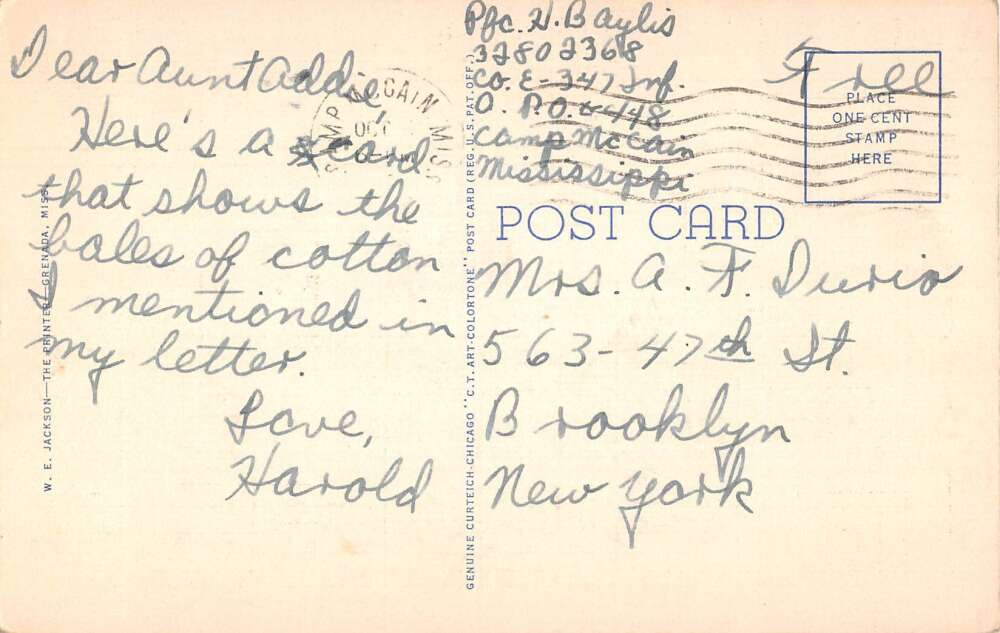 Dear Aunt Addie
Here's a card
that shows the
bales of cotton
I mentioned in
my letter.
Love,
Harold
CAMP McCAIN MISS
W. E. JACKSON—THE PRINTER—GRENADA, MISS.
GENUINE CURTEICH-CHICAGO "C.T. ART-COLORTONE" POST CARD (REG. U.S. PAT. OFF.)
Pfc. H. Baylis
32802368
Co. E-347 Inf.
A. P.O. 448
Camp McCain
Mississippi
Free
PLACE
ONE CENT
STAMP
HERE
POST CARD
Mrs. A. F. Durio
563-47th St.
Brooklyn
New York